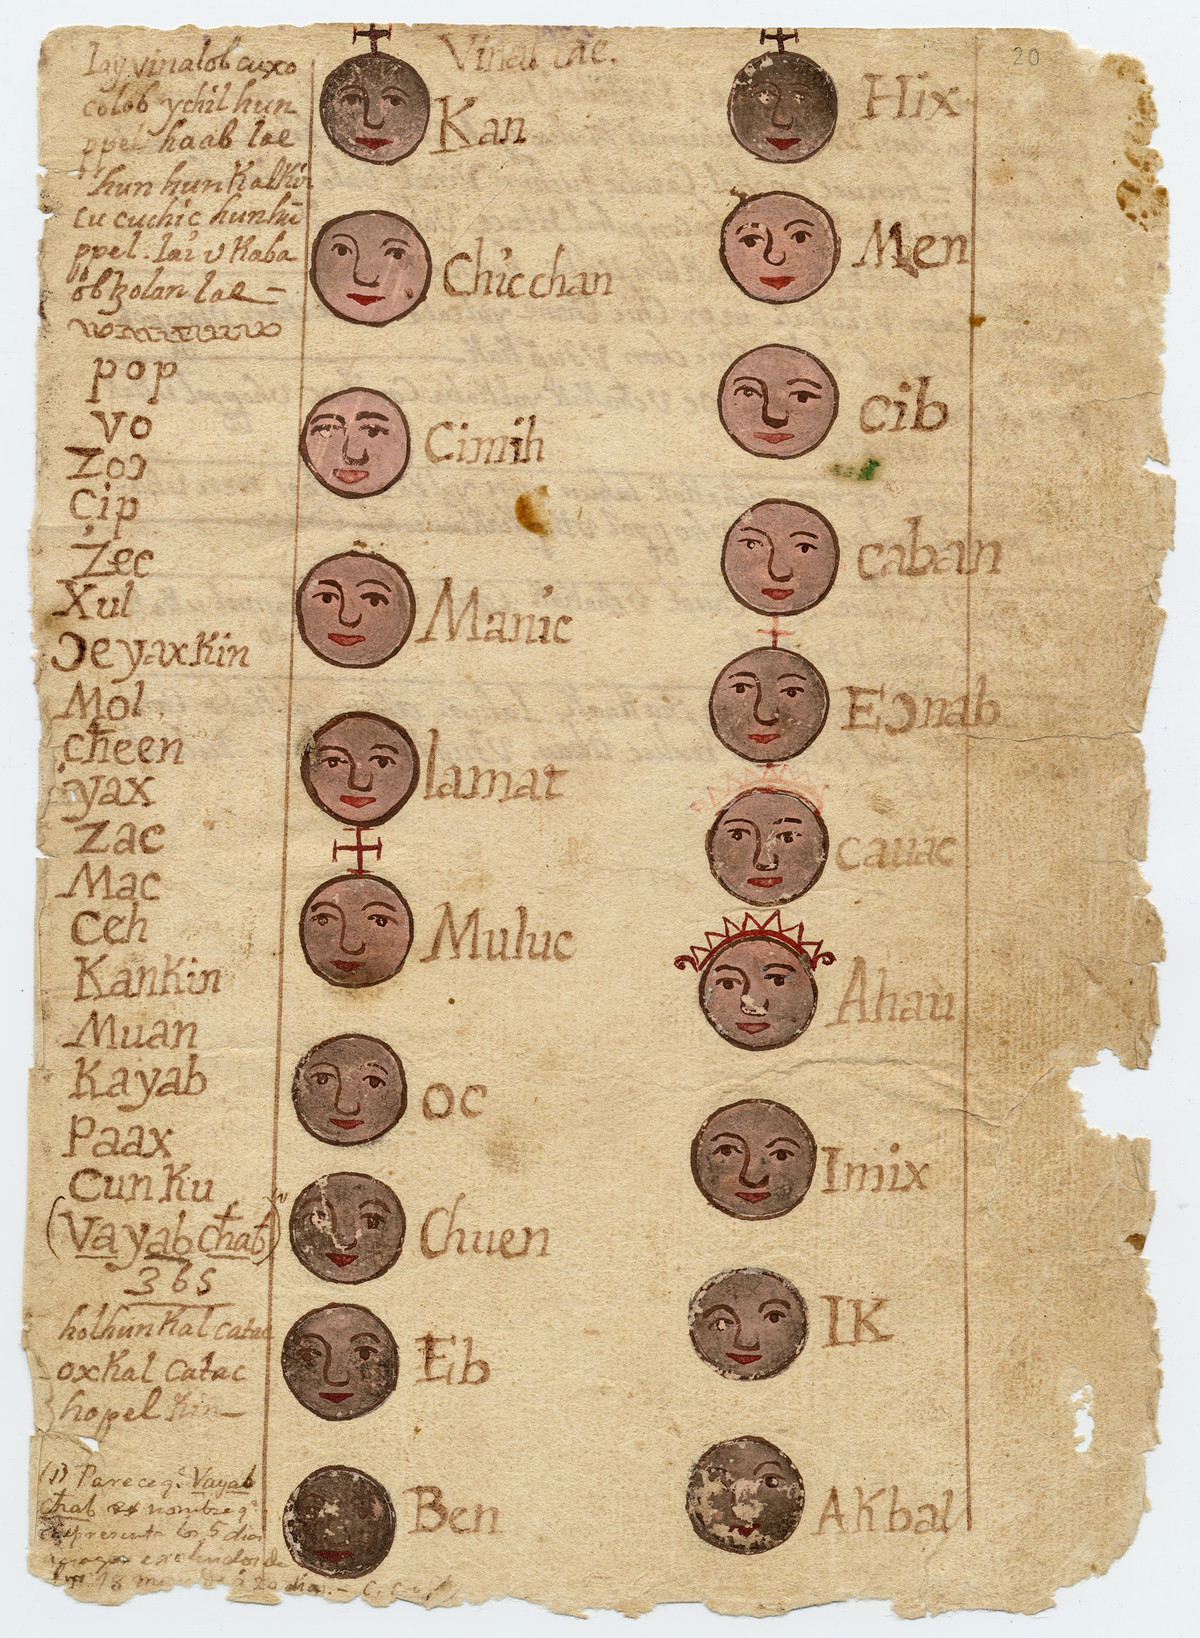 Lay vinalob cuxo
colob ychil hun
ppel haab lae
hun hun Kal Kin
cu cuchic hun hū
ppel. lai v Kaba
ob tzolan lae
pop
vo
Zoɔ
Cip
Zec
Xul
ɔeyaxKin
Mol.
cħeen
yax
Zac
Mac
Ceh
KanKin
Muan
Kayab
Paax
CunKu
(Vayab cħab)
365
holhun Kal catac
oxKal catac
hopel Kin
(1) Parece q.e Vayab
cħab es nombre q.e
representa los 5 dias
excluidos de
los 18 meses de á 20 dias.
Vinal lae.
Kan
Chicchan
Cimih
Manic
lamat
Muluc
oc
Chuen
Eb
Ben
20
Hix
Men
cib
caban
Eɔnab
cauac
Ahau
Imix
IK
AKbal